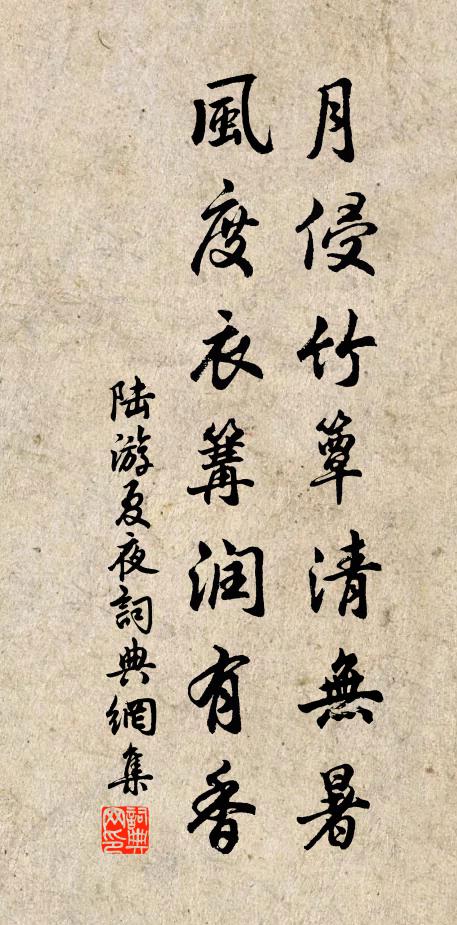 月侵竹簟清無暑
風度衣篝潤有香
陸游夏夜詞典網集
詞典網印